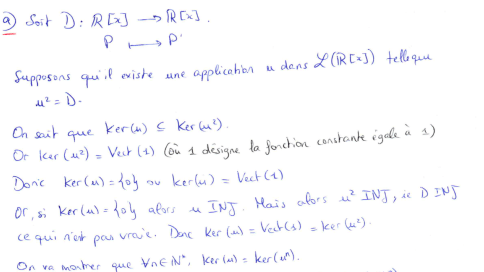 a) Soit D : ℝ[x] → ℝ[x].
P ↦ P'
Supposons qu'il existe une application u dans ℒ(ℝ[x]) telle que
u² = D.
On sait que Ker(u) ⊆ Ker(u²).
Or Ker(u²) = Vect(1) (où 1 désigne la fonction constante égale à 1)
Donc Ker(u) = {0} ou Ker(u) = Vect(1)
Or, si Ker(u) = {0} alors u INJ. Mais alors u² INJ, ie D INJ
ce qui n'est pas vraie. Donc Ker(u) = Vect(1) = Ker(u²).
On va montrer que ∀n∈ℕ*, Ker(u) = Ker(uⁿ).